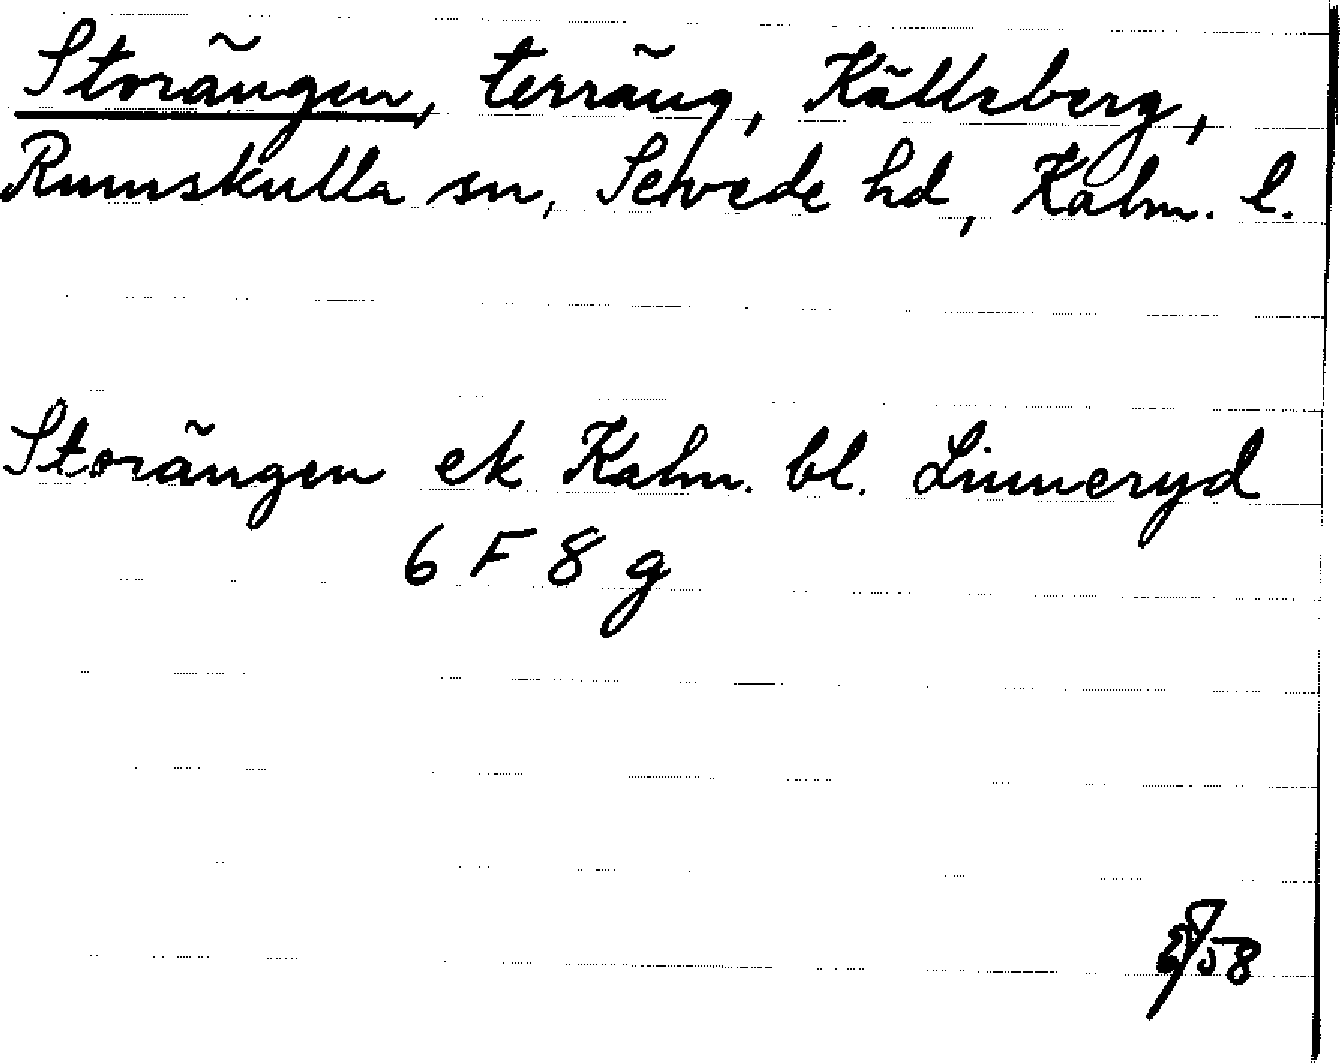 Storängen, terräng, Källeberg,
Rumskulla sn, Sevede hd, Kalm. l.
Storängen ek Kalm. bl. Linneryd
6 F 8 g
58